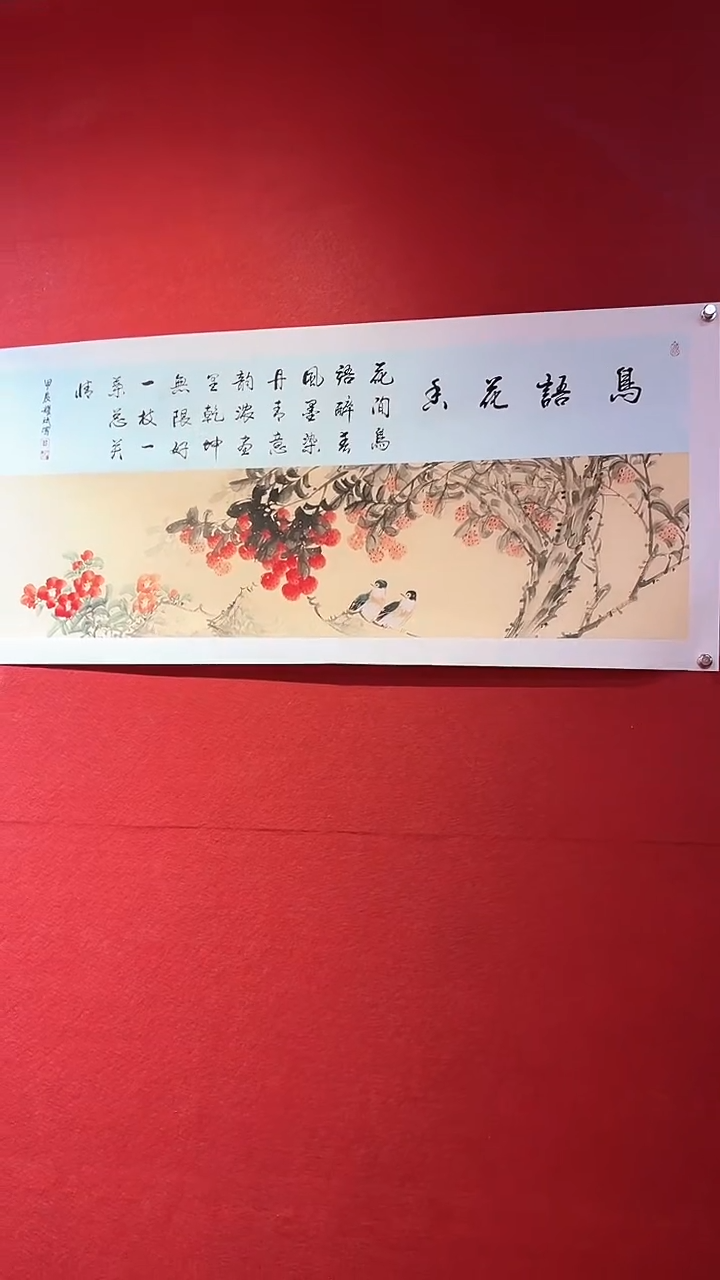 鳥語花香
花間鳥
語醉春
風墨染
丹青意
韵浓画
里乾坤
無限好
一枝一
葉总关
情
甲辰